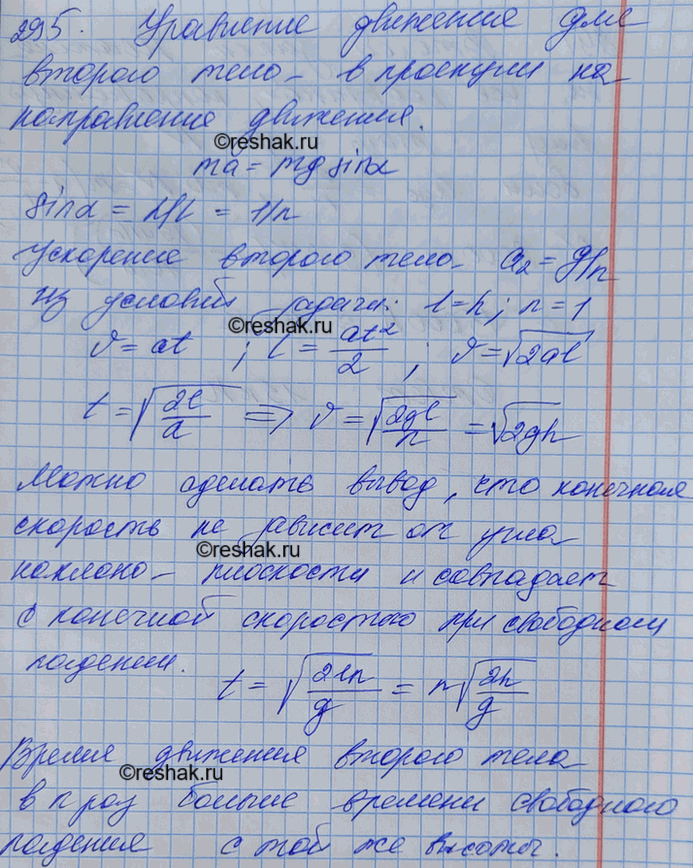 295. Уравнение движения для
второго тела в проекции на
направление движения.
©reshak.ru
ma = mg sinα
sinα = h/l = 1/n
Ускорение второго тела a₂ = g/n
из условий задачи: l=h; n=1
©reshak.ru
v = at ; l = at²/2 ; v = √2al
t = √(2l/a) => v = √(2gl/n) = √2gh
Можно сделать вывод, что конечная
скорость не зависит от угла
©reshak.ru
наклона плоскости и совпадает
с конечной скоростью при свободном
падении.
t = √(2ln/g) = n√(2h/g)
Время движения второго тела
©reshak.ru
в n раз больше времени свободного
падения с той же высоты.